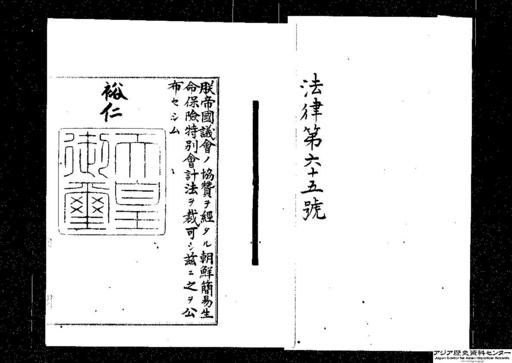 法律第六十五號
朕帝國議會ノ協贊ヲ經タル朝鮮簡易生
命保險特別會計法ヲ裁可シ茲ニ之ヲ公
布セシム
裕仁
天皇
御璽
アジア歴史資料センター
Japan Center for Asian Historical Records